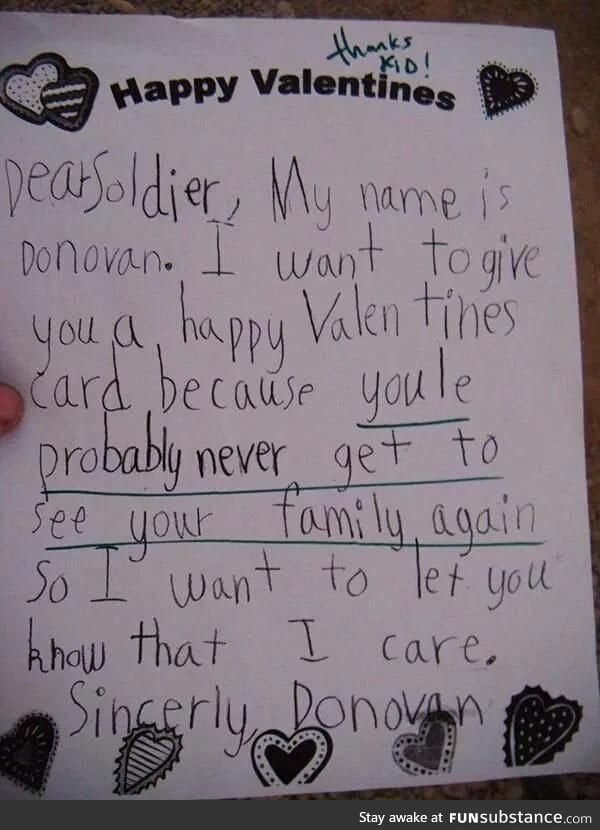 thanks
KID!
Happy Valentines
Dear Soldier, My name is
Donovan. I want to give
you a happy Valentines
card because youle
probably never get to
see your family again
So I want to let you
know that I care.
Sincerly, Donovan
Stay awake at FUNsubstance.com